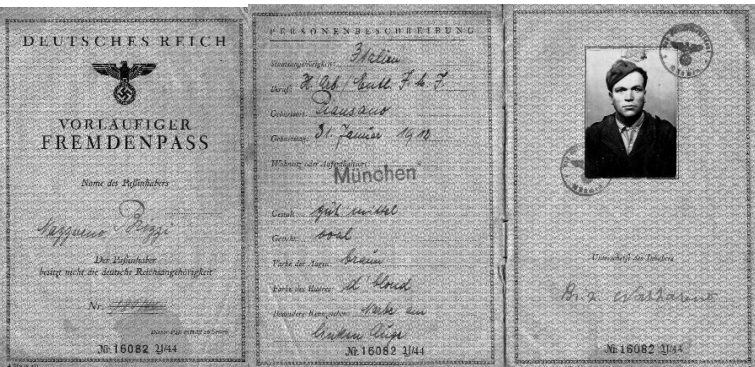 DEUTSCHES REICH
VORLÄUFIGER
FREMDENPASS
Name des Paßinhabers
Rizzi
Der Paßinhaber
besitzt nicht die deutsche Reichsangehörigkeit
Nr.
№ 16082 II/44
PERSONENBESCHREIBUNG
Staatsangehörigkeit: Italien
Beruf:
Geburtsort: Piansano
Geburtstag: 31. Januar 1912
Wohnung oder Aufenthaltsort:
München
Gestalt: gut mittel
Gesicht: oval
Farbe der Augen: braun
Farbe des Haares: d blond
Besondere Kennzeichen: Narbe am
linken Auge
№ 16082 II/44
Unterschrift des Inhabers
№ 16082 II/44